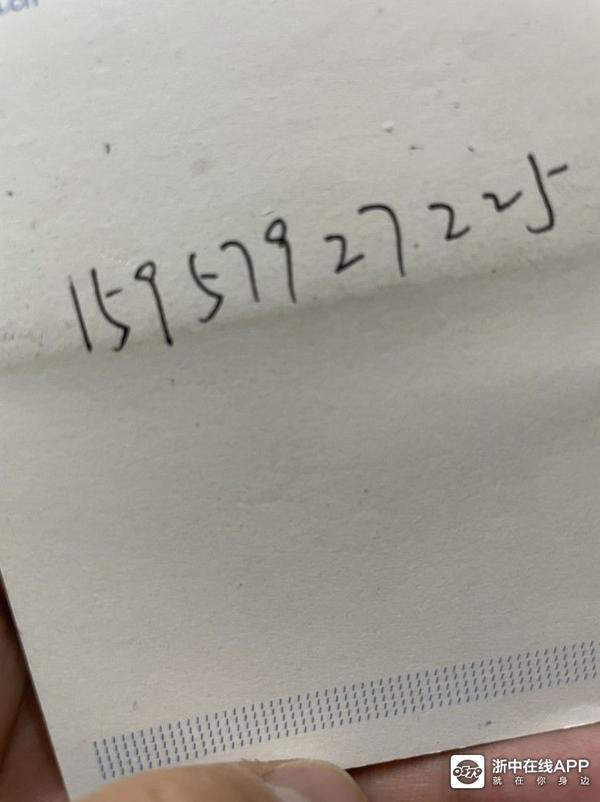 15957927225
浙中在线APP
就在你身边